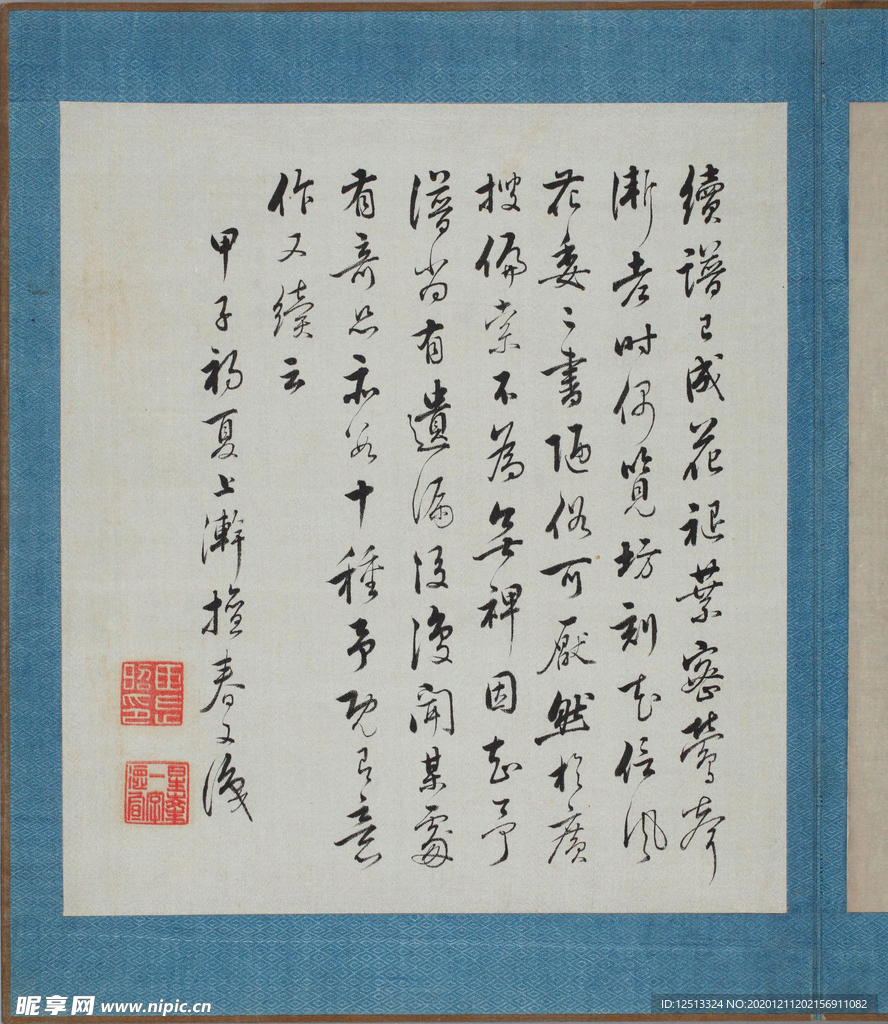 續譜已成花褪葉密鶯聲
漸老時偶覽坊刻花信風
花委二書陋俗可厭然於廣
搜偏索不為無裨因知予
譜尚有遺漏後復聞某處
有奇品亦若十種予既有意
作又續云
甲子初夏上澣擅春又識
昵享网 www.nipic.cn
ID:12513324 NO:20201211202156911082